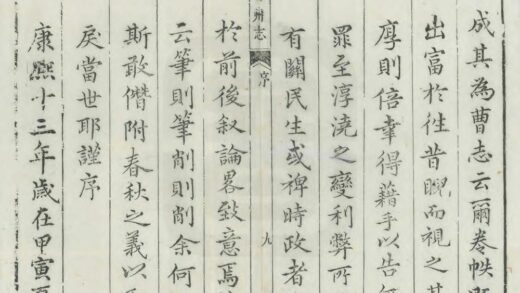 成其為曹志云爾卷帙
出富於徃昔睨而視之其
厚則倍幸得藉手以告
罪至淳澆之變利弊所
有關民生或裨時政者
州志
序
九
於前後叙論畧致意焉
云筆則筆削則削余何
斯敢僭附春秋之義以
戾當世耶謹序
康熙十三年歲在甲寅